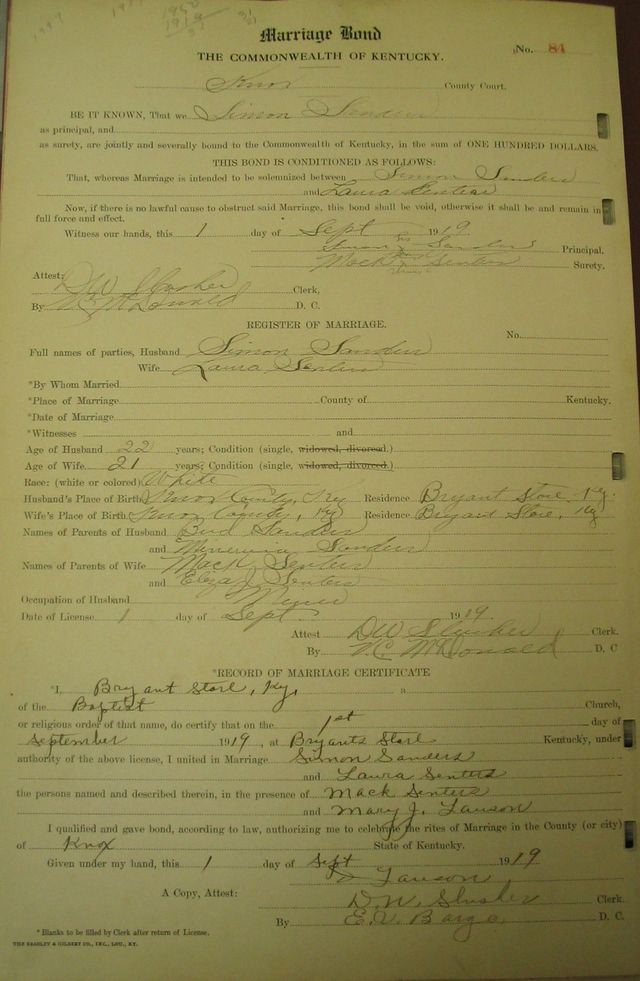 1950
1919
31
Marriage Bond
No. 84
THE COMMONWEALTH OF KENTUCKY.
Knox County Court.
BE IT KNOWN, That we Simon Sanders
as principal, and
as surety, are jointly and severally bound to the Commonwealth of Kentucky, in the sum of ONE HUNDRED DOLLARS.
THIS BOND IS CONDITIONED AS FOLLOWS:
That, whereas Marriage is intended to be solemnized between Simon Sanders
and Laura Senters
Now, if there is no lawful cause to obstruct said Marriage, this bond shall be void, otherwise it shall be and remain in
full force and effect.
Witness our hands, this 1 day of Sept 1919.
Simon Sanders Principal.
Mack Senters Surety.
Attest:
D W Slusher Clerk,
By V. C. McDonald D. C.
REGISTER OF MARRIAGE.
No.
Full names of parties, Husband Simon Sanders
Wife Laura Senters
*By Whom Married
*Place of Marriage County of Kentucky.
*Date of Marriage
*Witnesses and
Age of Husband 22 years; Condition (single, widowed, divorced.)
Age of Wife 21 years; Condition (single, widowed, divorced.)
Race: (white or colored) White
Husband's Place of Birth Knox County, Ky Residence Bryant Store, Ky.
Wife's Place of Birth Knox County, Ky Residence Bryant Store, Ky
Names of Parents of Husband Bud Sanders
and Minervia Sanders
Names of Parents of Wife Mack Senters
and Eleza J Senters
Occupation of Husband Miner
Date of License 1 day of Sept. 1919.
Attest D W Slusher Clerk.
By V. C. McDonald D. C
*RECORD OF MARRIAGE CERTIFICATE
*I, Bryant Store, Ky, a
of the Baptist Church,
or religious order of that name, do certify that on the 1st day of
September 1919, at Bryants Store Kentucky, under
authority of the above license, I united in Marriage Simon Sanders
and Laura Senters
the persons named and described therein, in the presence of Mack Senters
and Mary J. Lawson
I qualified and gave bond, according to law, authorizing me to celebrate the rites of Marriage in the County (or city)
of Knox State of Kentucky.
Given under my hand, this 1 day of Sept 1919
Lawson
A Copy, Attest: D. W. Slusher Clerk.
By E. V. Bargo, D. C.
* Blanks to be filled by Clerk after return of License.
THE BRADLEY & GILBERT CO., INC., LOU., KY.